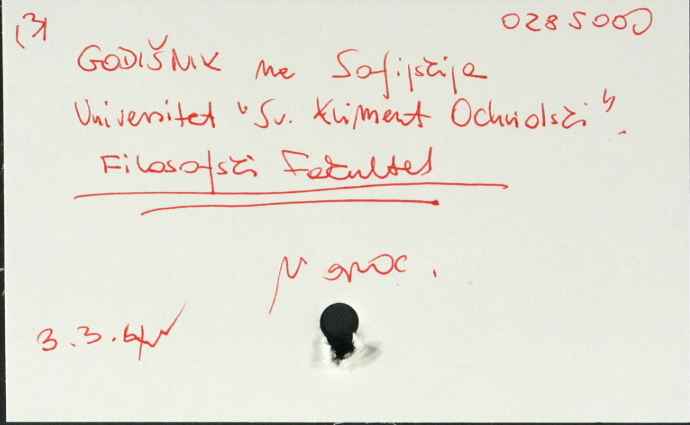 (3)
0285000
GODIŠNIK na Sofijskija
Universitet "Sv. Kliment Ochridski".
Filosofski Fakultet
3.3.